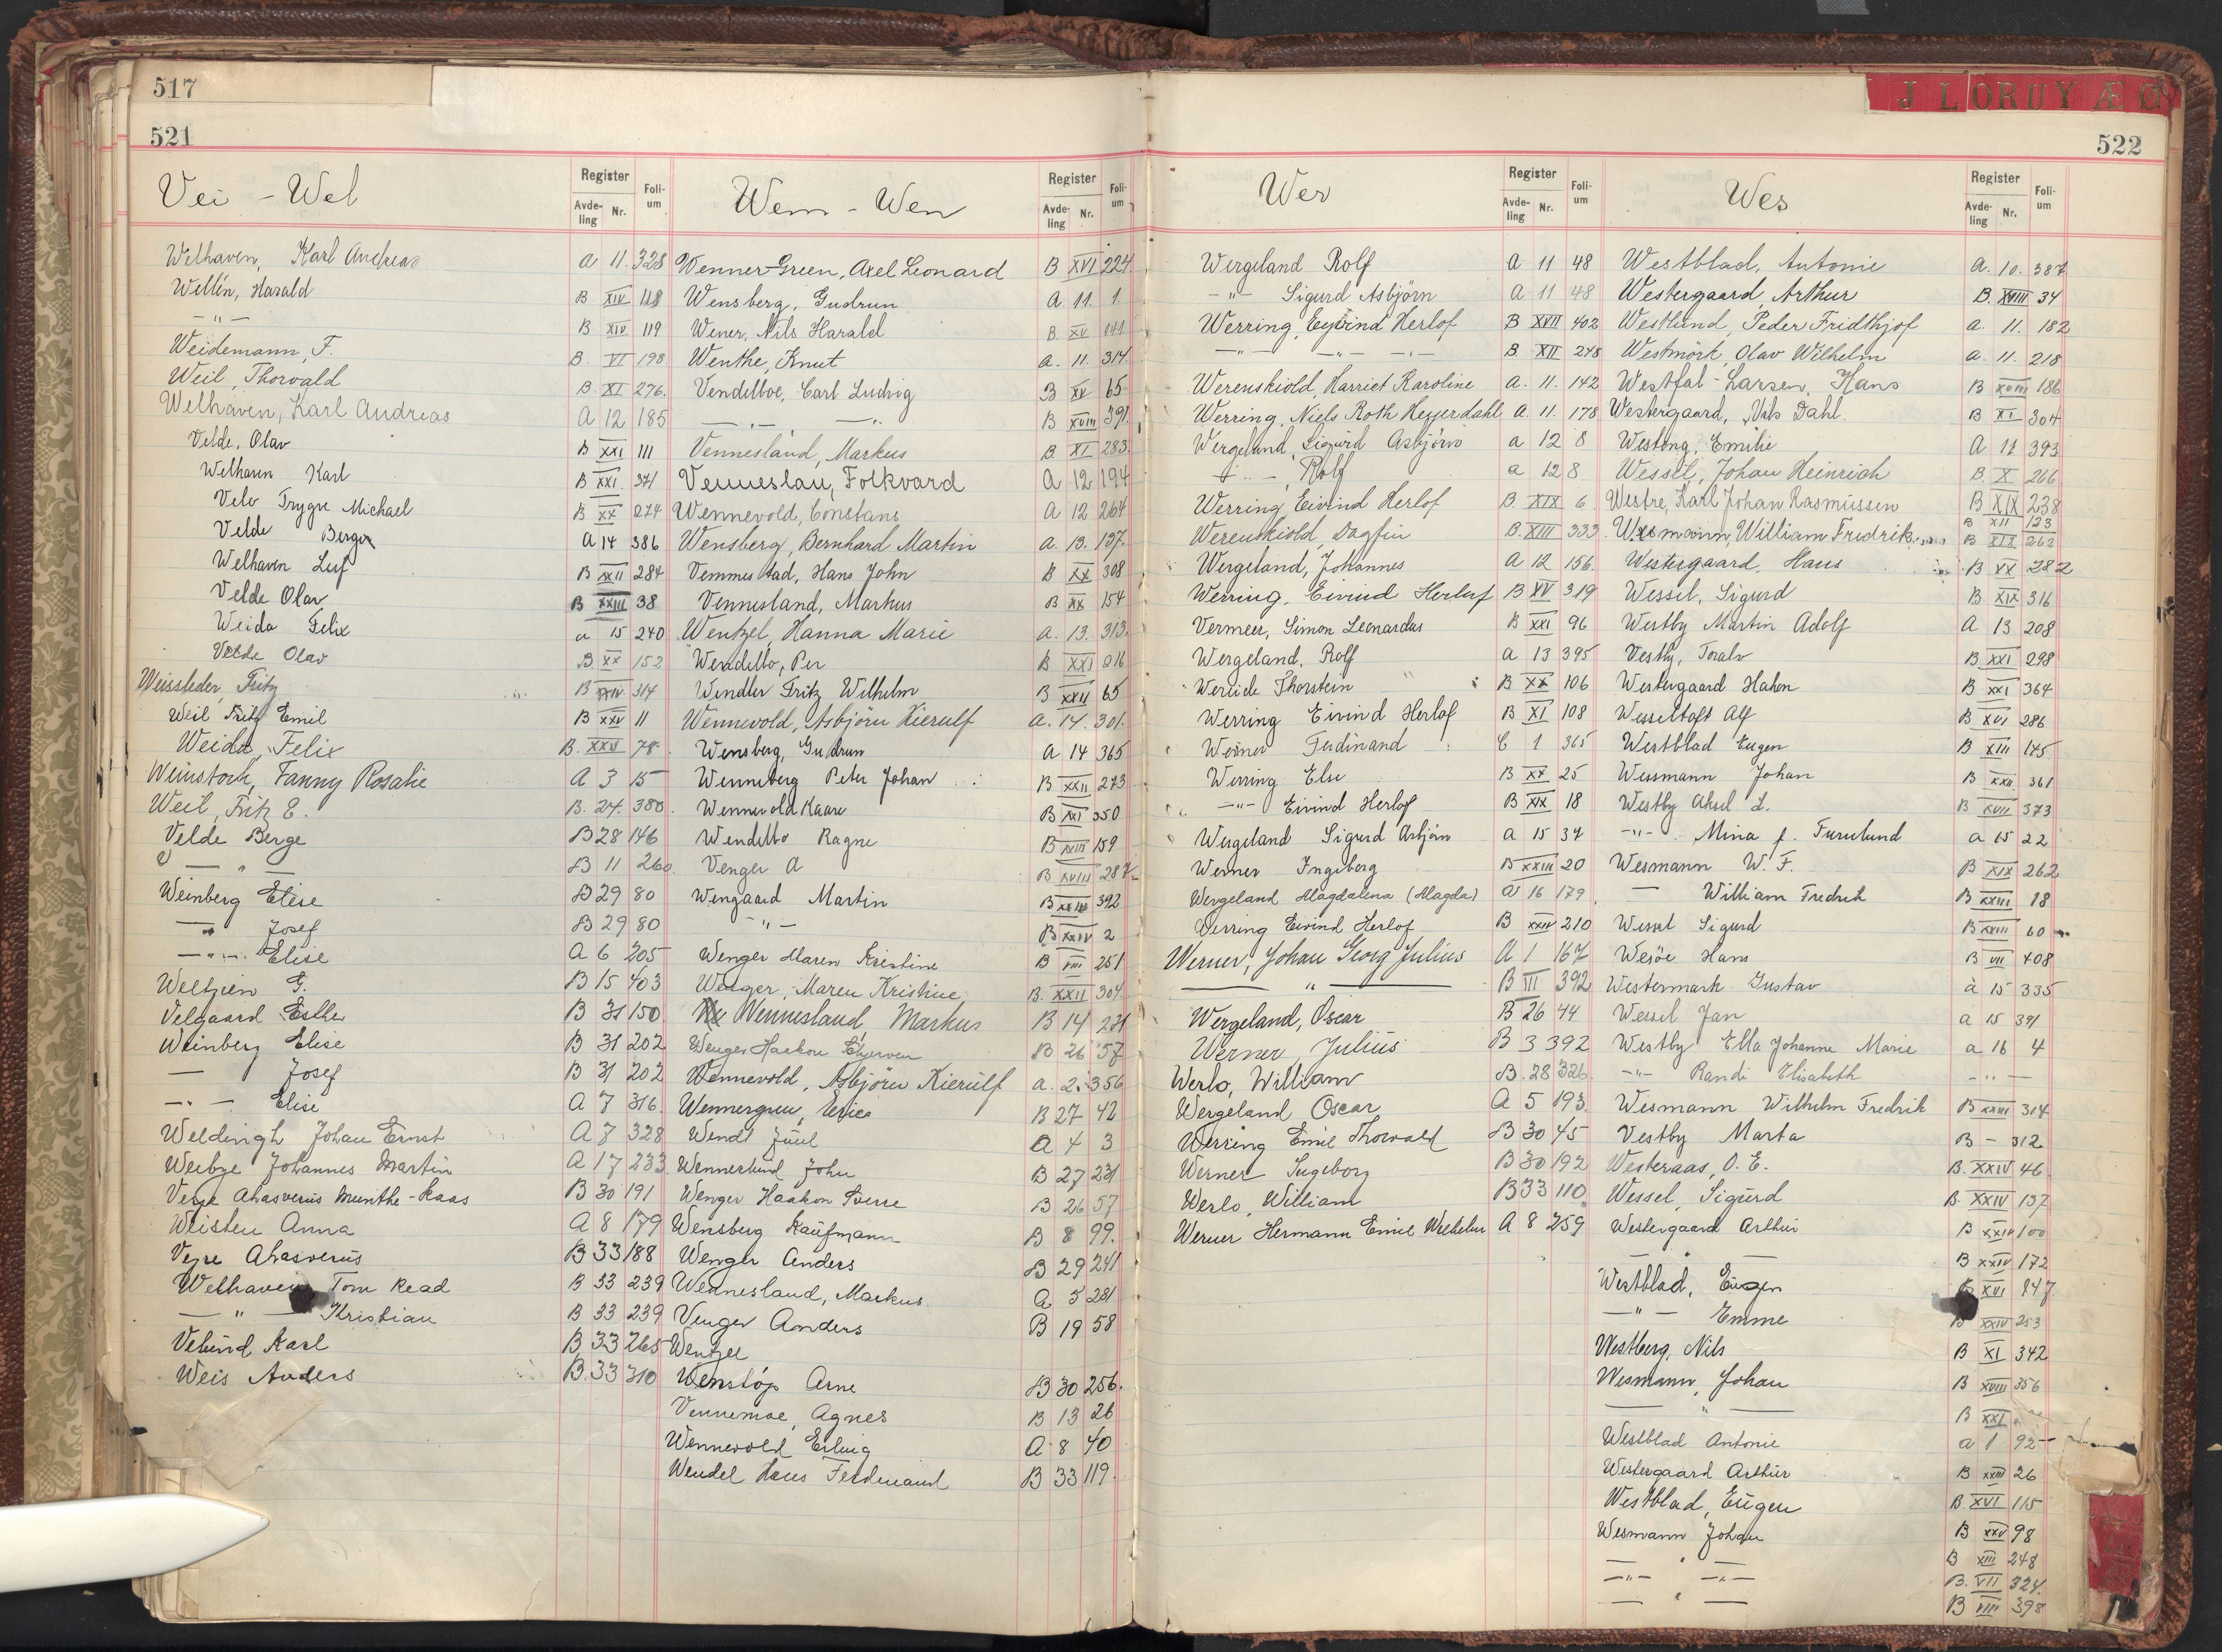 517
521
Vei - Wel
Register
Avdeling Nr. Folium
Welhaven, Karl Andreas A 11. 328
Wellén, Harald B XIV 118
— " — B XIV 119
Weidemann, F. B. VI 198
Weil, Thorvald B. XI 276.
Welhaven, Karl Andreas A 12 185
Velde, Olav B XXI 111
Welhaven Karl B XXI. 341
Velo Trygve Michael B XX 274
Velde Berger A 14 386
Welhaven Leif B XXII 284
Velde Olav B XXIII 38
Weida Felix a 15 240
Velde Olav B. XX 152
Weissleder, Fritz B XXIV 314
Weil Fritz Emil B XXV 11
Weida, Felix B. XXV 78
Weinstock, Fanny Rosalie A 3 15
Weil, Fritz E. B. 24. 380.
Velde Berge B 28 146
— " — B 11 260.
Weinberg Elise B 29 80
— " Josef B 29 80
— " — Elise A 6 205
Weltzien G. B 15 403
Velgaard Esther B 31 150
Weinberg Elise B 31 202
— Josef B 31 202
— " — Elise A 7 316.
Weldingh Johan Ernst A 7 328
Weibye Johannes Martin A 17 233
Veyre Ahasverus Munthe-Kaas B 30 191
Weisten Anna A 8 179
Vejre Ahasverus B 33 188
Welhaven Tom Read B 33 239
— " — Kristian B 33 239
Velund Karl B 33 265
Weis Anders B. 33 310
Wem - Wen
Register
Avdeling Nr. Folium
Wenner-Green, Axel Leonard B XVI 224
Wensberg, Gudrun A 11. 1.
Wener, Nils Harald B XV 141
Wenthe, Knut a. 11. 314
Vendelboe, Carl Ludvig B XV 65
— " — — " — B XVIII 391.
Vennesland, Markus B XI 283
Venneslau, Folkvard A 12 194
Wennevold, Constans A 12 264
Wensberg, Bernhard Martin a. 13. 137.
Vemmestad, Hans John B XX 308
Vennesland, Markus B XX 154
Wentzel, Hanna Marie a. 13. 313.
Wendelbo, Per B XXI 216
Wendler Fritz Wilhelm B XXII 65
Wennevold, Asbjörn Kierulf a. 14. 301.
Wensberg, Gudrun A 14 365
Wenneberg Peter Johan B XXII 273
Wennevold Kaare B XXI 350
Wendelbo Ragne B XXIII 159
Venger A B XVIII 287
Wengaard Martin B XXIII 392
— " — B XXIV 2
Wenger Maren Kristine B VIII 251
Wenger, Maren Kristine, B. XXII 304
Vennesland, Markus B 14 231
Wenger Haakon B 26 57
Wennevold, Asbjörn Kierulf a. 2. 356
Wennergren, Erica B 27 42
Wendt Juul A 4 3
Wennerlund John B 27 231
Wenger Haakon Sverre B 26 57
Wensberg Kaufmann B 8 99.
Wenger Anders B 29 241
Wennesland, Markus A 5 281
Venger Anders B 19 58
Wentzel
Wenstöp Arne B 30 256.
Vennemoe, Agnes B 13 26
Wennevold Erling A 8 40
Wendel Hans Ferdinand B 33 119.
J L O R U Y Æ Ø
522
Wer
Register
Avdeling Nr. Folium
Wergeland Rolf A 11 48
— " — Sigurd Asbjörn A 11 48
Werring, Eyvind Herlof B XVII 402
— " — — " — — " — B. XII 248
Werenskiold, Harriet Karoline A. 11. 142
Werring, Niels Roth Heyerdahl A. 11. 178
Wergeland, Sigurd Asbjörn a 12 8
— " —, Rolf a 12 8
Werring, Eivind Herlof B. XIX 6
Werenskiold, Dagfin B. XIII 333
Wergeland, Johannes A 12 156
Werring, Eivind Herlof B XV 319
Vermeer, Simon Leonardus B XXI 96
Wergeland, Rolf a 13 395
Thorstein B XX 106
Werring Eivind Herlof B XI 108
Werner Ferdinand C 1 365
Werring Else B XX 25
— " — Eivind Herlof B XIX 18
Wergeland Sigurd Asbjörn a 15 34
Werner Ingeborg B XXIII 20
Wergeland Magdalena (Magda) a 16 179
Werring Eivind Herlof B XXIV 210
Werner, Johan Georg Julius A 1 167
— " — B III 392
Wergeland, Oscar B 26 44
Werner, Julius B 3 392
Werlo, William B. 28 326.
Wergeland Oscar A 5 193.
Werring Emil Thorvald B 30 45
Werner Ingeborg B 30 192
Werlo, William B 33 110
Werner Hermann Emil Wilhelm A 8 259
Wes
Register
Avdeling Nr. Folium
Westblad, Antonie A. 10. 387
Westergaard, Arthur B. XVIII 34
Westlund, Peder Fridthjof a. 11. 182
Westmörk, Olav Wilhelm a. 11. 218
Westfal-Larsen, Hans B XVIII 186
Westergaard, Nils Dahl. B XI 304
Westeng, Emilie A 11 393
Wessel, Johan Heinrich B. X 266
Westre, Karl Johan Rasmussen B XIX 238
B XII 123
Wesmann, William Fredrik B XIX 262
Westergaard, Hans B XX 282
Wessel, Sigurd B XIX 316
Westby Martin Adolf A 13 208
Vestly, Toralv B XXI 298
Westergaard Hakon B XXI 364
Wesseltoft Alf B XVI 286
Westblad Eugen B XIII 145
Wesmann Johan B XXII 361
Westby Aksel L. B XVII 373
— " — Mina f. Furulund a 15 22
Wesmann W. F. B XIX 262
— William Fredrik B XXIII 18
Wessel Sigurd B XXIII 60
Wesöe Hans B VII 408
Westermark Gustav a 15 335
Wessel Jan a 15 391
Westby Ella Johanne Marie a 16 4
— " — Randi Elisabeth — " —
Wesmann Wilhelm Fredrik B XXIII 314
Vestby Marta B — 312
Westeraas, O. E. B. XXIV 46
Wessel, Sigurd B XXIV 137
Westergaard Arthur B XXIV 100
— " — B XXIV 172
Westblad, Eugen B XVI 247
— " — Emme B XXIV 253
Westberg, Nils B XI 342
Wesmann, Johan B XVIII 356
— " — B XXI
Westblad Antonie a 1 92
Westergaard Arthur B XXIII 26
Westblad, Eugen B. XVI 115
Wesmann Johan B XXV 98
— " — B XIII 248
— " — — " — B. VII 324.
— " — B VIII 398